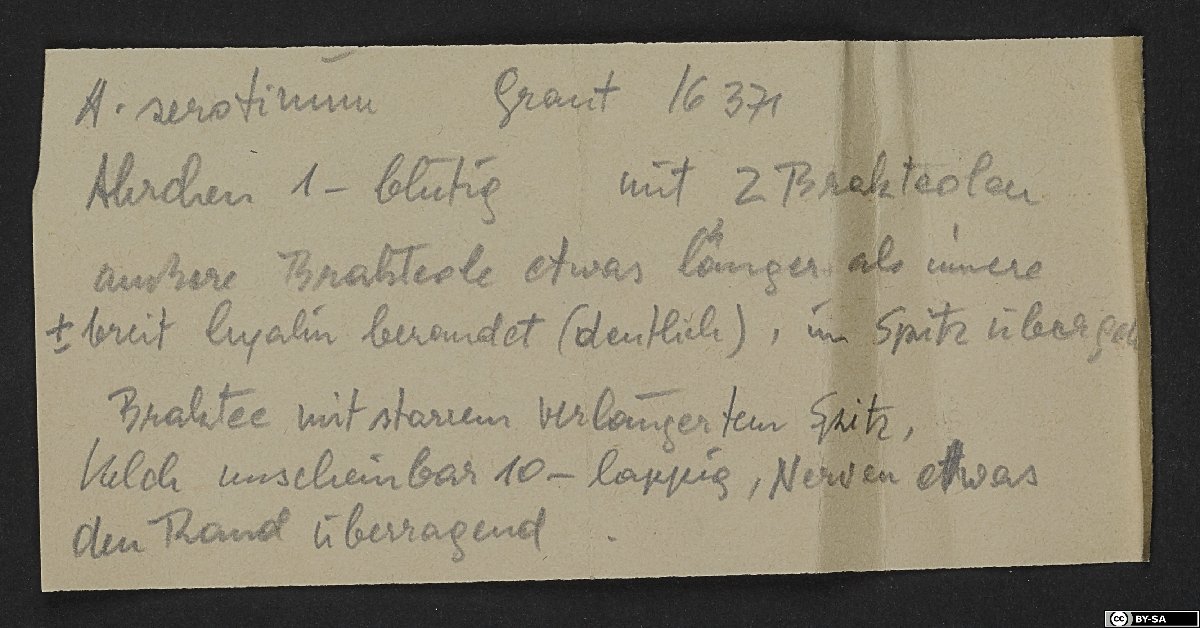 A. serotinum Grant 16371
Ährchen 1- blütig mit 2 Brakteolen
äußere Brakteole etwas länger als innere
± breit hyalin berandet (deutlich), im Spitz übergeh
Braktee mit starrem verlängertem Spitz,
Kelch unscheinbar 10- lappig, Nerven etwas
den Rand überragend .
cc BY-SA